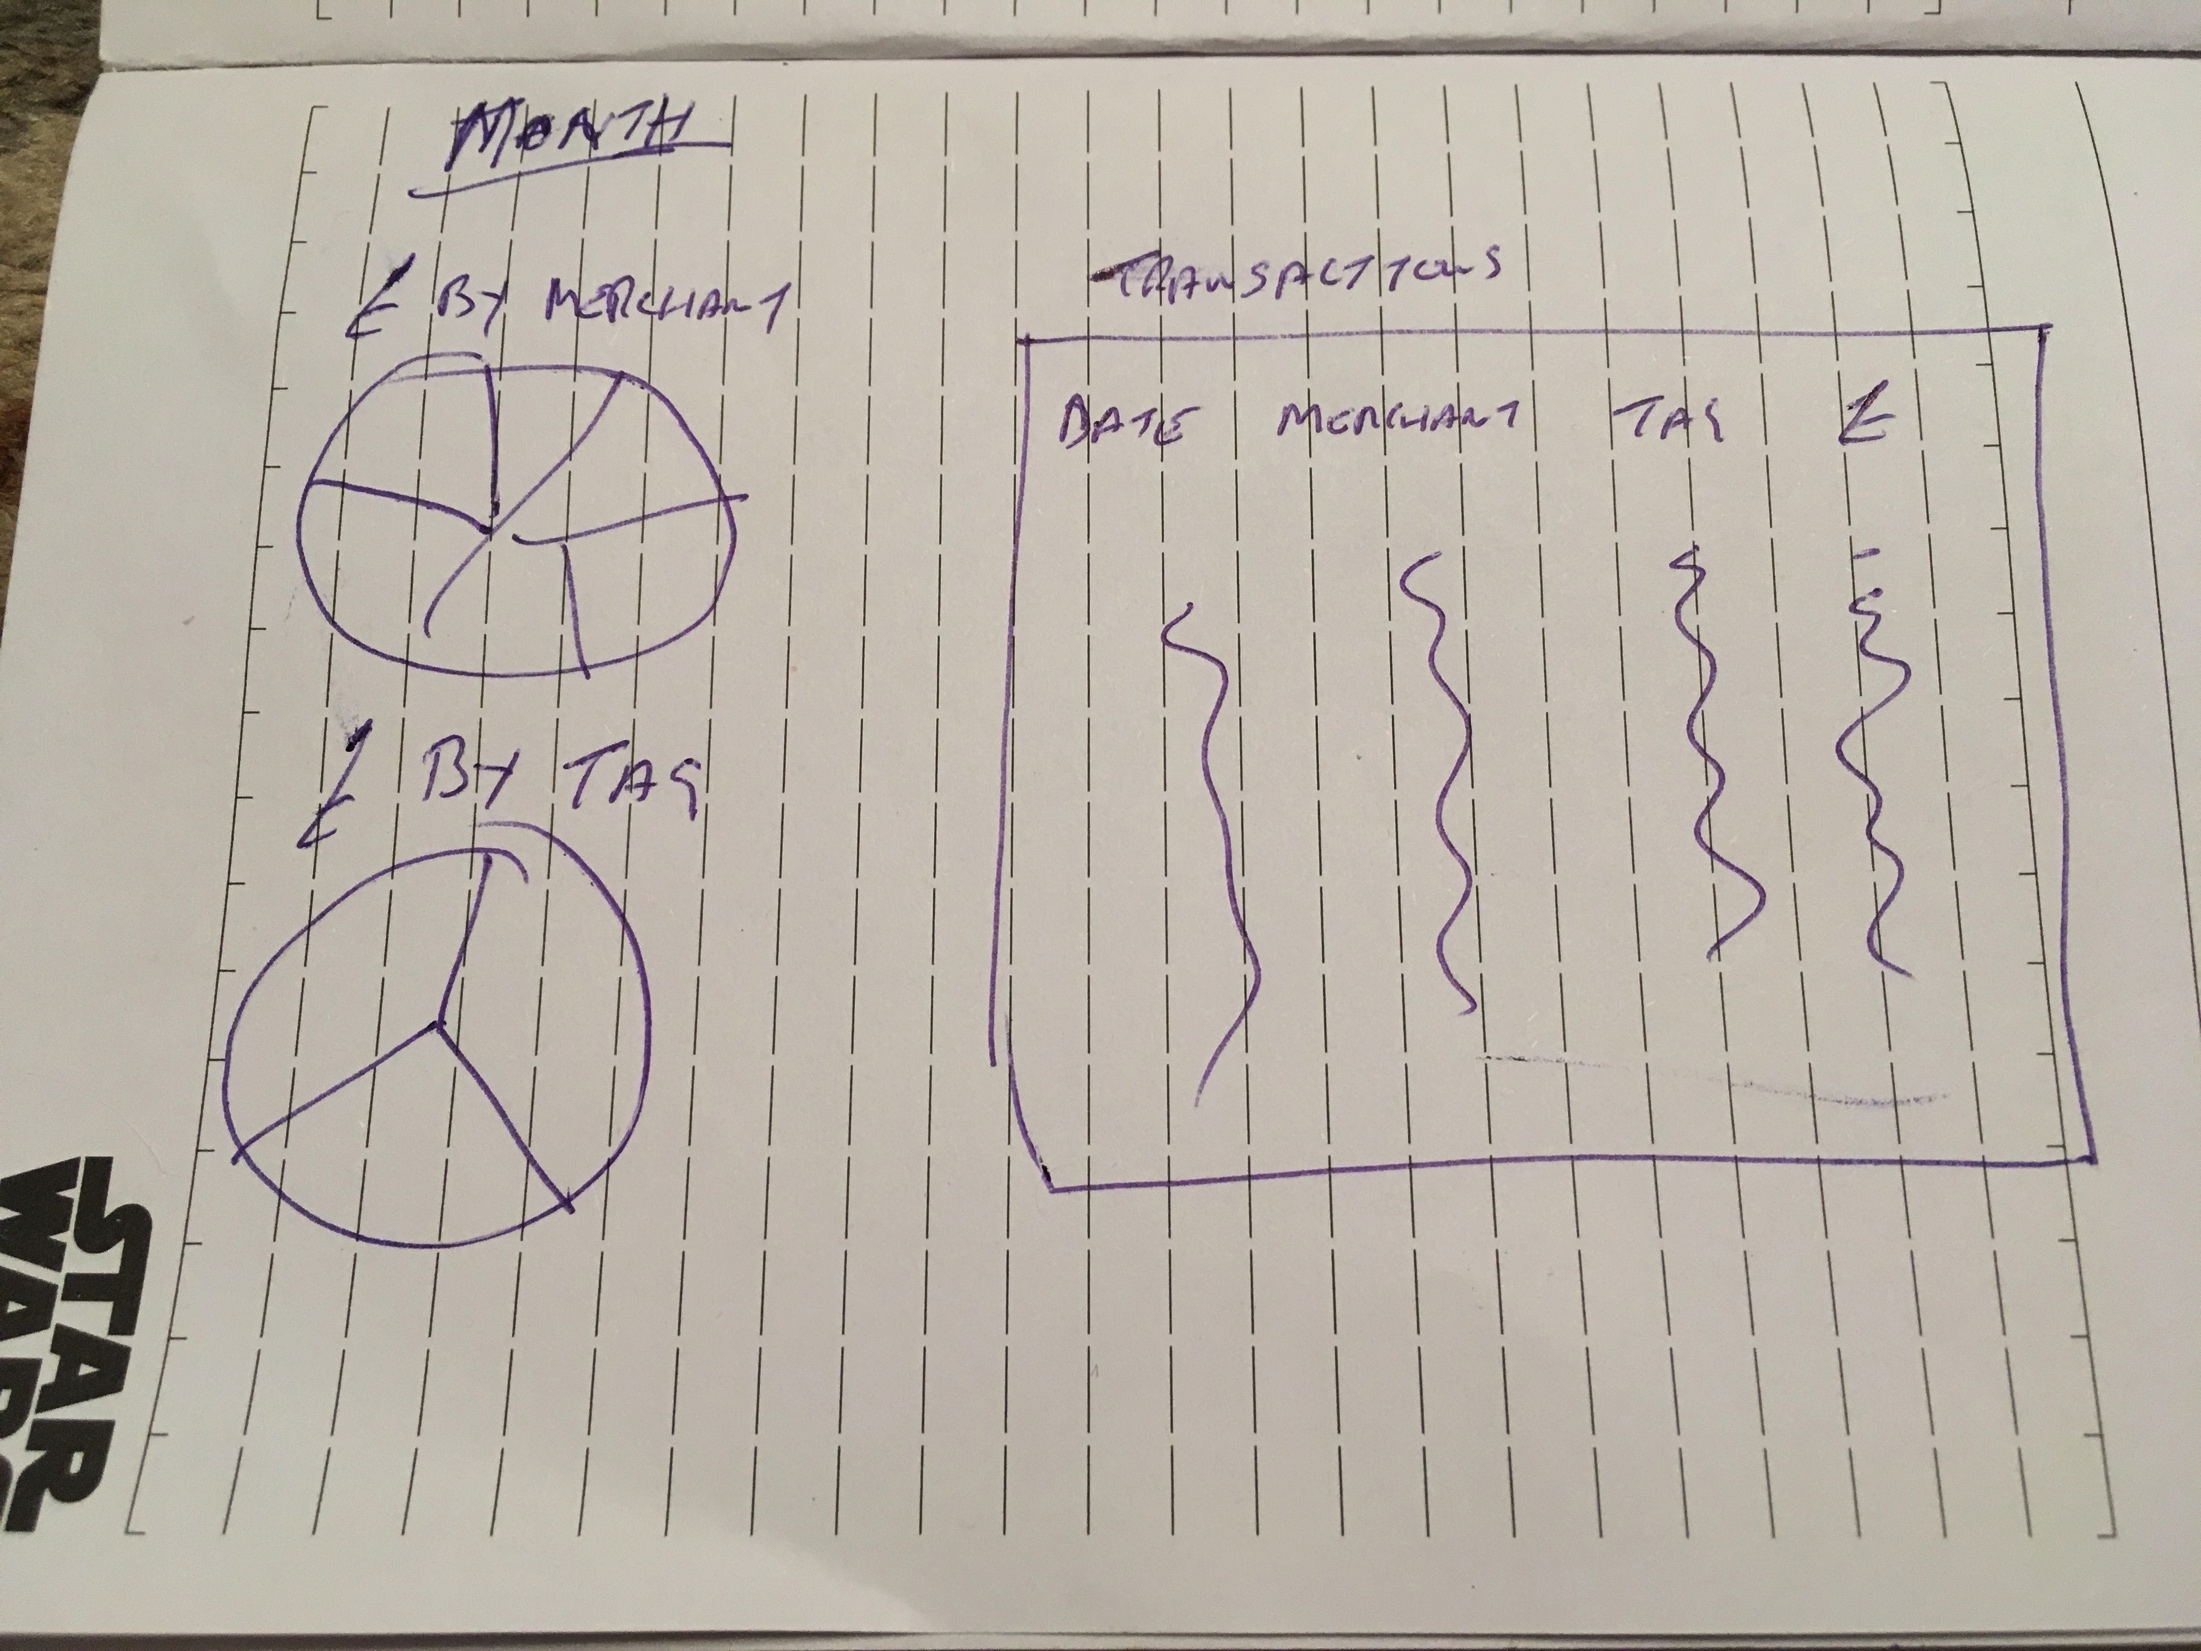 MONTH
£ BY MERCHANT
£ BY TAG
TRANSACTIONS
DATE MERCHANT TAG £
STAR
WARS